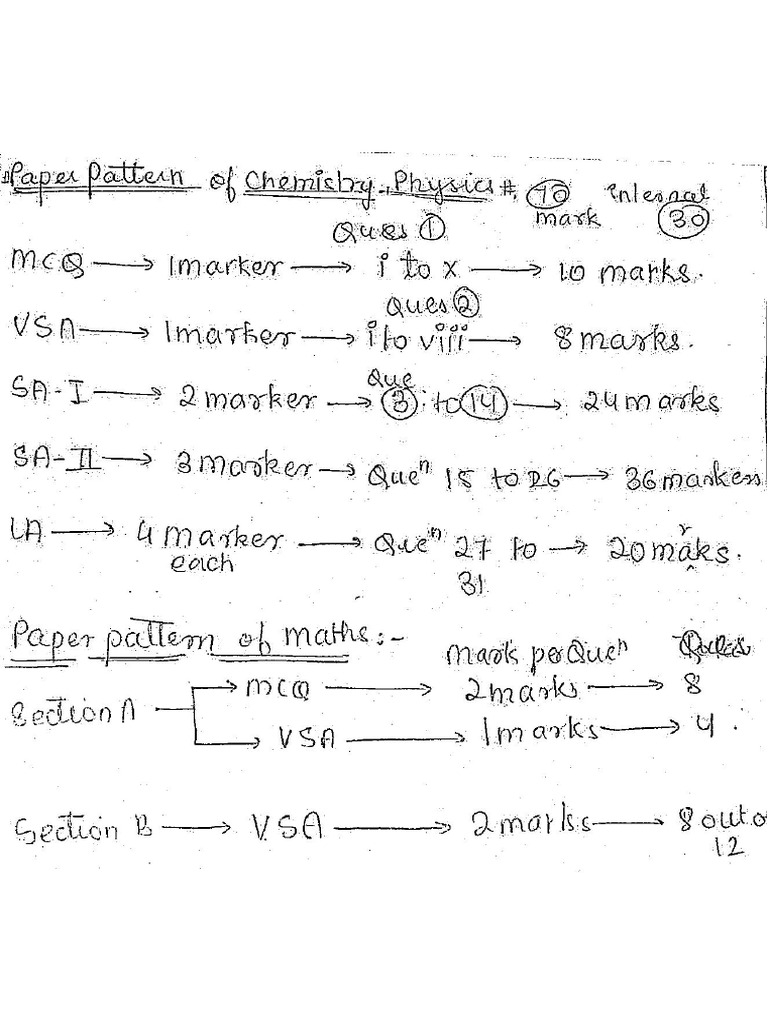 Paper Pattern of Chemistry, Physics #, 70 internal
mark 30
Ques 1
MCQ → 1marker → i to x → 10 marks.
Ques 2
VSA → 1marker → i to viii → 8 marks.
Que
SA-I → 2 marker → 3 : to 14 → 24 marks
SA-II → 3 marker → Queⁿ 15 to 26 → 36 markers
LA → 4 marker → Queⁿ 27 to → 20 maks.
r
each 31
Paper pattern of maths:-
Mark per Queⁿ Ques
Section A → MCQ → 2 marks → 8
→ VSA → 1 marks → 4.
Section B → V.SA → 2 marks → 8 out o
12